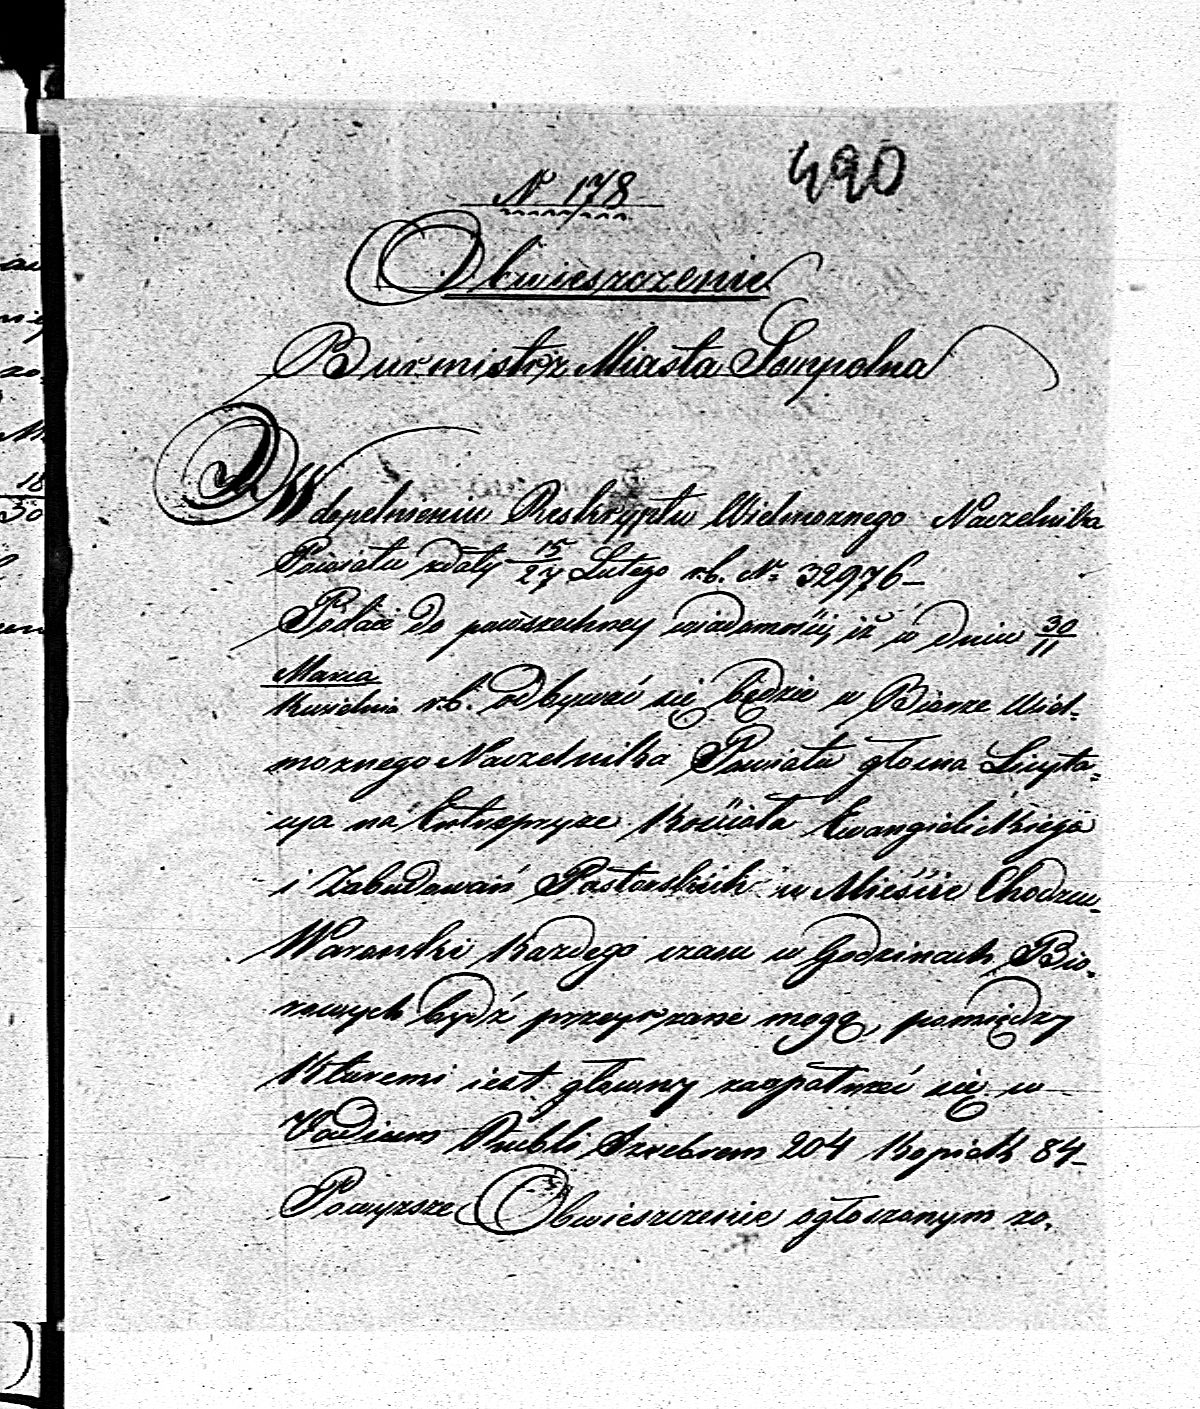 490
N 178
Obwieszczenie
Burmistrz Miasta Sompolna
W dopełnieniu Reskryptu Wielmoznego Naczelnika
Powiatu zdaty 15/27 Lutego r.b. No 32976 –
Podaie do powszechney wiadomości, iż w dniu 30/11
Marca
Kwietnia r.b. odbywać się będzie w Biorze Wiel-
moznego Naczelnika Powiatu głosna Licyta-
cya na Entrepryze Kościoła Ewangielickiego
i Zabudowań Pastorskich w Mieście Chodzcu
Warunki Kazdego czasu w Godzinach Bio-
rowych bydź przeyrzane mogą, pomiędzy
Któremi iest głowny zaopatrzeć się w
Vadium Rubli Srebrem 204 Kopiek 84 –
Powyzsze Obwieszczenie ogłoszonym zo-